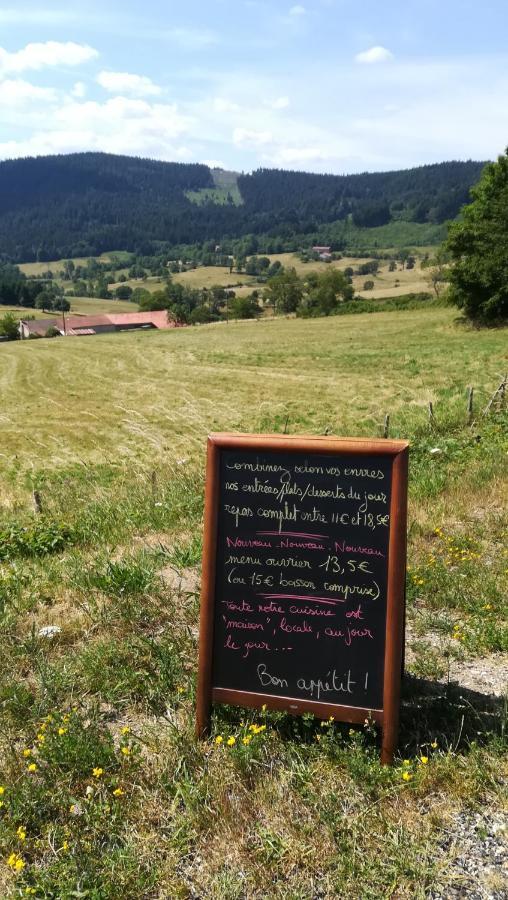 Combinez selon vos envies
nos entrées/plats/desserts du jour
repas complet entre 11€ et 18,5€
Nouveau_Nouveau_Nouveau
menu ouvrier 13,5€
(ou 15€ boisson comprise)
Toute notre cuisine est
"maison", locale, au jour
le jour...
Bon appétit !